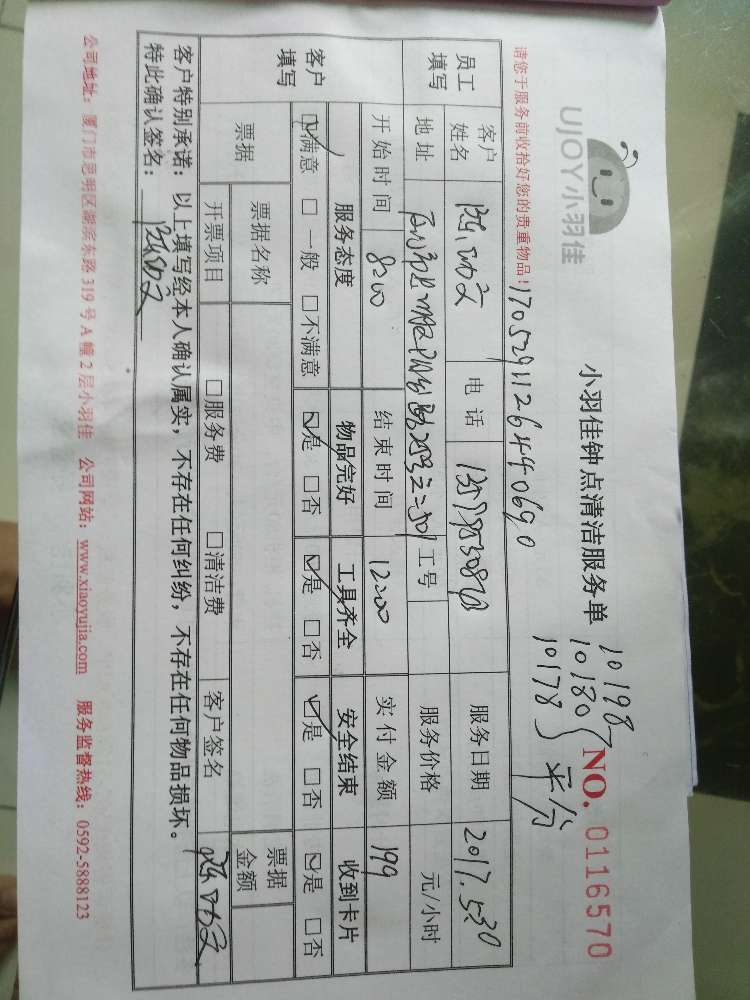 UJOY小羽佳
小羽佳钟点清洁服务单
10198
10180
10178
平分
NO. 0116570
请您于服务前收拾好您的贵重物品!
员工填写
客户姓名
电话
服务日期 2017.5.30
地址
工号
服务价格 元/小时
开始时间 8:00
结束时间 12:00
实付金额 199
客户填写
服务态度 物品完好 工具齐全 安全结束 收到卡片
☑满意 □一般 □不满意 ☑是 □否 ☑是 □否 ☑是 □否 ☑是 □否
票据
票据名称
票据金额
开票项目 □服务费 □清洁费 客户签名
客户特别承诺:以上填写经本人确认属实,不存在任何纠纷,不存在任何物品损坏。
特此确认签名:
公司地址:厦门市思明区湖滨东路319号A幢2层小羽佳 公司网站:www.xiaoyujia.com 服务监督热线:0592-5888123